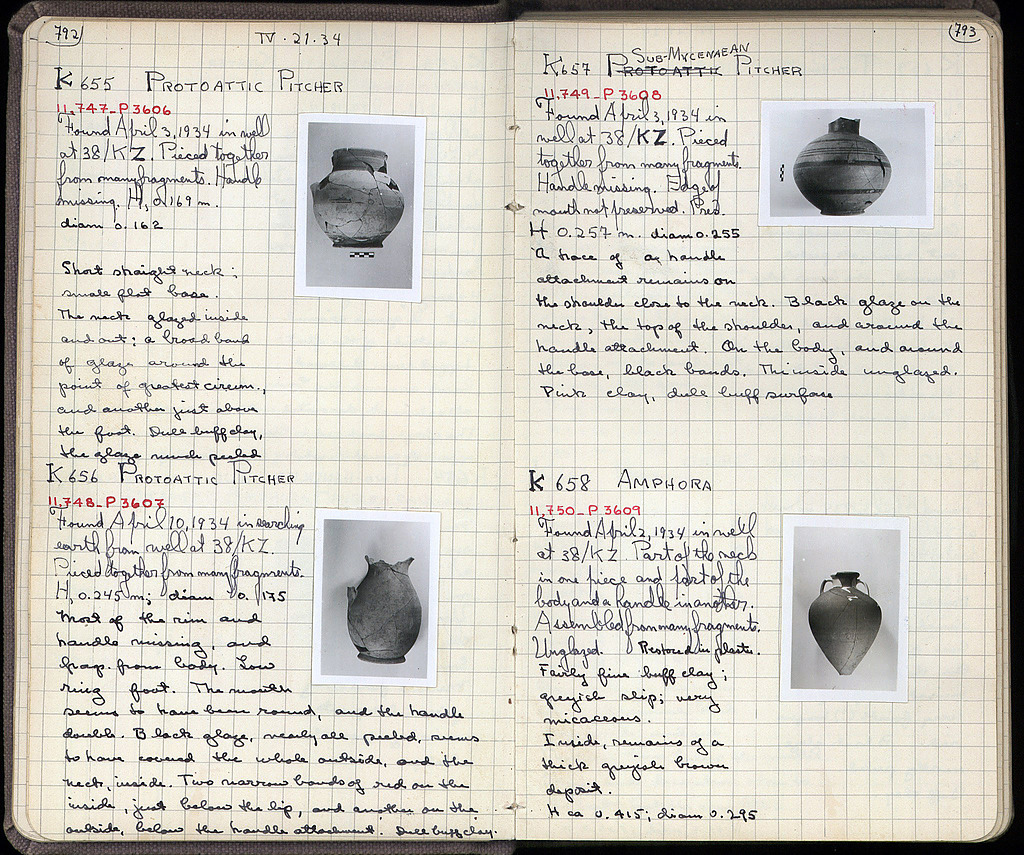 792
IV · 21 · 34
K 655 PROTOATTIC PITCHER
11,747 - P 3606
Found April 3, 1934 in well
at 38/KZ. Pieced together
from many fragments. Handle
missing. H, 0.169 m.
diam 0.162
Short straight neck;
small flat base.
The neck glazed inside
and out; a broad band
of glaze around the
point of greatest circum.,
and another just above
the foot. Dull buff clay,
the glaze much peeled
K 656 PROTOATTIC PITCHER
11,748 - P 3607
Found April 10, 1934 in searching
earth from well at 38/KZ.
Pieced together from many fragments.
H, 0.245 m; diam 0.175
Most of the rim and
handle missing, and
frag. from body. Low
ring foot. The mouth
seems to have been round, and the handle
double. Black glaze, nearly all peeled, seems
to have covered the whole outside, and the
neck, inside. Two narrow bands of red on the
inside, just below the lip, and another on the
outside, below the handle attachment. Dull buff clay.
793
SUB-MYCENAEAN
K 657 PROTOATTIC PITCHER
11,749 - P 3608
Found April 3, 1934 in
well at 38/KZ. Pieced
together from many fragments.
Handle missing. Edge of
mouth not preserved. Pres.
H 0.257 m. diam 0.255
A trace of a handle
attachment remains on
the shoulder close to the neck. Black glaze on the
neck, the top of the shoulder, and around the
handle attachment. On the body, and around
the base, black bands. The inside unglazed.
Pink clay, dull buff surface
K 658 AMPHORA
11,750 - P 3609
Found April 2, 1934 in well
at 38/KZ. Part of the neck
in one piece and part of the
body and a handle in another.
Assembled from many fragments.
Unglazed. Restored in plaster.
Fairly fine buff clay;
greyish slip; very
micaceous.
Inside, remains of a
thick greyish brown
deposit.
H ca 0.415; diam 0.295